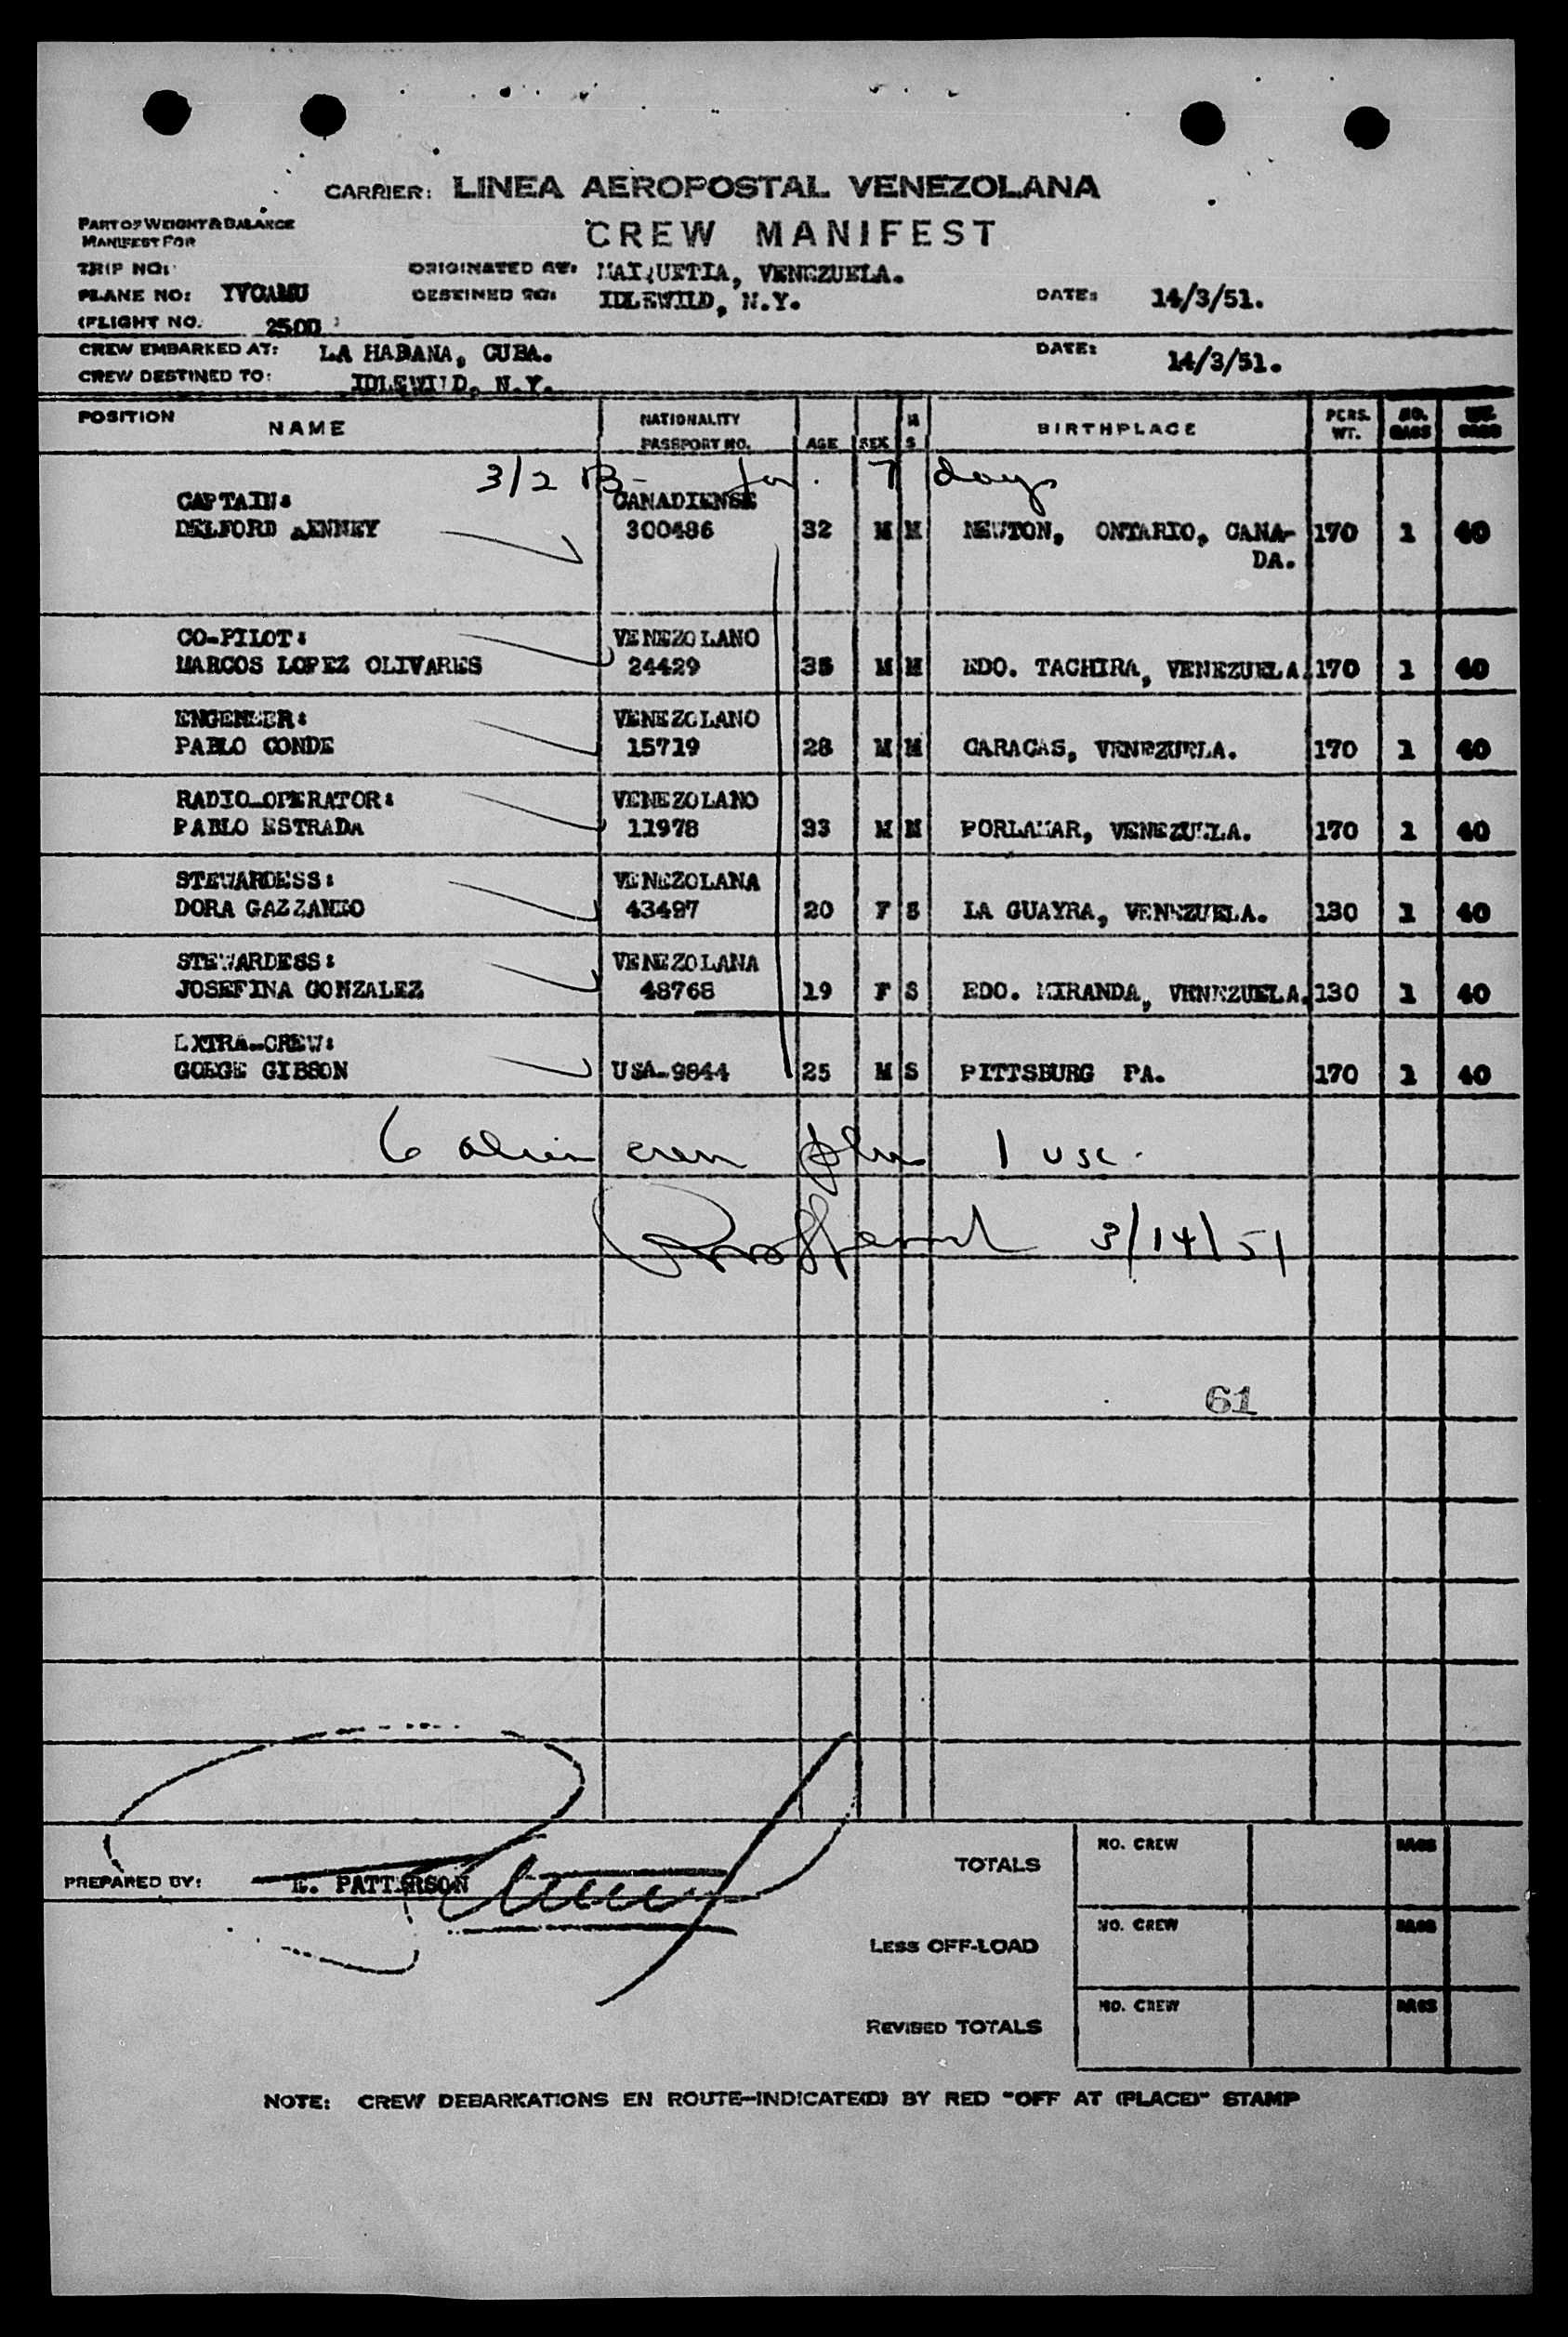 CARRIER: LINEA AEROPOSTAL VENEZOLANA
PART OF WEIGHT & BALANCE
MANIFEST FOR
CREW MANIFEST
TRIP NO:
ORIGINATED AT: MAIQUETIA, VENEZUELA.
PLANE NO: YVCAMU
DESTINED TO: IDLEWILD, N.Y.
DATE: 14/3/51.
(FLIGHT NO. 2500
CREW EMBARKED AT: LA HABANA, CUBA.
DATE: 14/3/51.
CREW DESTINED TO: IDLEWILD, N.Y.
POSITION NAME NATIONALITY PASSPORT NO. AGE SEX M S BIRTHPLACE PERS. WT. NO. BAGS WT. BAGS
3/2 B- for 7 days
CAPTAIN: CANADIENSE
DELFORD 300486 32 M M NEWTON, ONTARIO, CANA- 170 1 40
DA.
CO-PILOT: VENEZOLANO
MARCOS LOPEZ OLIVARES 24429 35 M M EDO. TACHIRA, VENEZUELA. 170 1 40
ENGENEER: VENEZOLANO
PABLO CONDE 15719 28 M M CARACAS, VENEZUELA. 170 1 40
RADIO-OPERATOR: VENEZOLANO
PABLO ESTRADA 11978 33 M M PORLAMAR, VENEZUELA. 170 1 40
STEWARDESS: VENEZOLANA
DORA GAZZANEO 43497 20 F S LA GUAYRA, VENEZUELA. 130 1 40
STEWARDESS: VENEZOLANA
JOSEFINA GONZALEZ 48768 19 F S EDO. MIRANDA, VENEZUELA. 130 1 40
EXTRA-CREW:
GOEGE GIBSON USA-9844 25 M S PITTSBURG PA. 170 1 40
6 alien crew plus 1 usc.
3/14/51
61
TOTALS NO. CREW BAGS
PREPARED BY: E. PATTERSON
LESS OFF-LOAD NO. CREW BAGS
REVISED TOTALS NO. CREW BAGS
NOTE: CREW DEBARKATIONS EN ROUTE-INDICATE(D) BY RED "OFF AT (PLACE)" STAMP